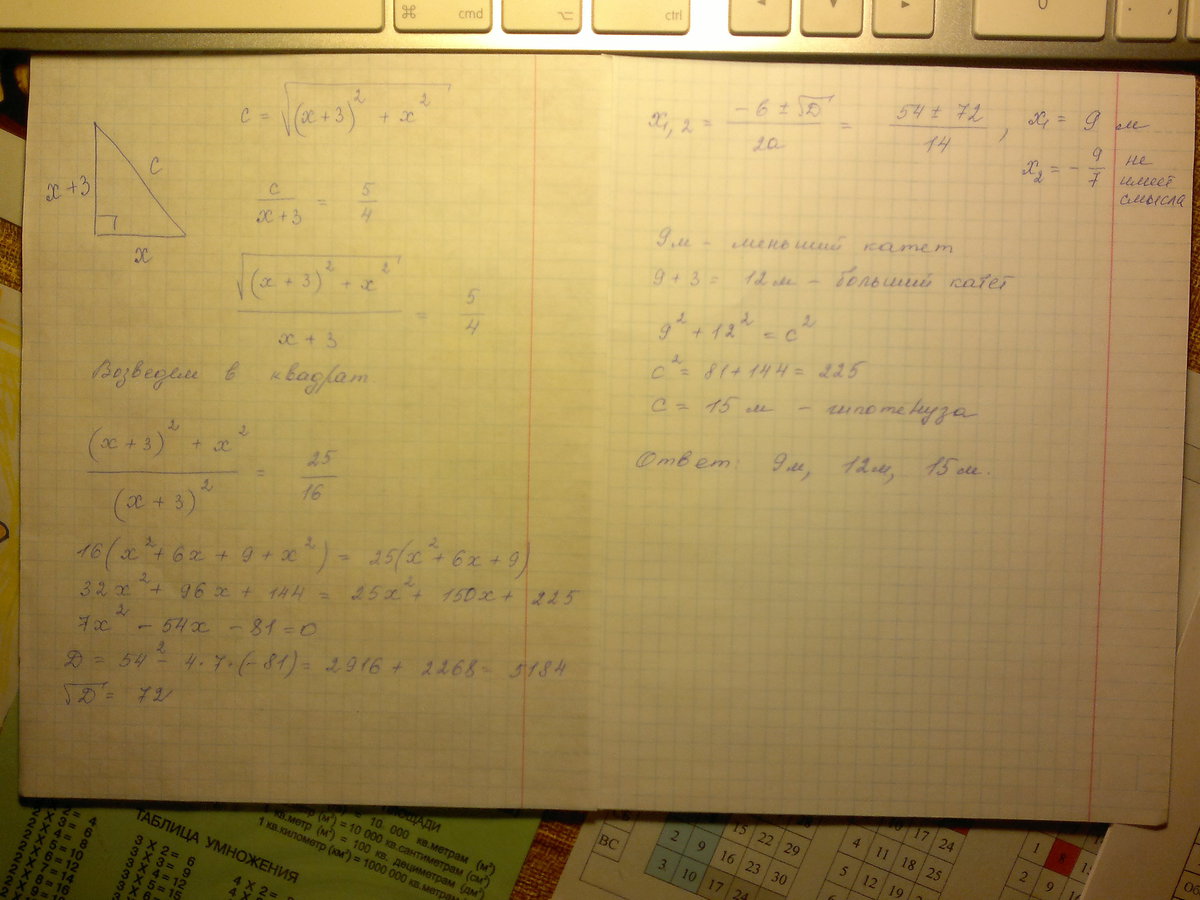 ⌘ cmd ⌥ ctrl ◂ ▾ ▸ 0
c = √((x+3)² + x²)
x+3
c
x
c/(x+3) = 5/4
√((x+3)² + x²)/(x+3) = 5/4
Возведем в квадрат
((x+3)² + x²)/(x+3)² = 25/16
16(x² + 6x + 9 + x²) = 25(x² + 6x + 9)
32x² + 96x + 144 = 25x² + 150x + 225
7x² - 54x - 81 = 0
D = 54² - 4·7·(-81) = 2916 + 2268 = 5184
√D = 72
x₁,₂ = (-б ± √D)/2a = (54 ± 72)/14, x₁ = 9 м
x₂ = -9/7 не
имеет
смысла
9м - меньший катет
9 + 3 = 12 м - больший катет
9² + 12² = c²
c² = 81 + 144 = 225
c = 15 м - гипотенуза
Ответ: 9м, 12м, 15м.
ТАБЛИЦА УМНОЖЕНИЯ
3 X 2 = 6
3 X 3 = 9
3 X 4 = 12
3 X 5 = 15
4 X 2 =
= 10 000 кв.метрам (м²)
метр (м²) = 10 000 кв.сантиметрам (см²)
1 кв.метр (м²) = 100 кв. дециметрам (дм²)
1 кв.километр (км²) = 1000 000 кв.метрам
ВС
2 9
3 10
15 22 29
16 23 30
17 24
17 24
4 11 18 25
5 12 19
1 8
2 9